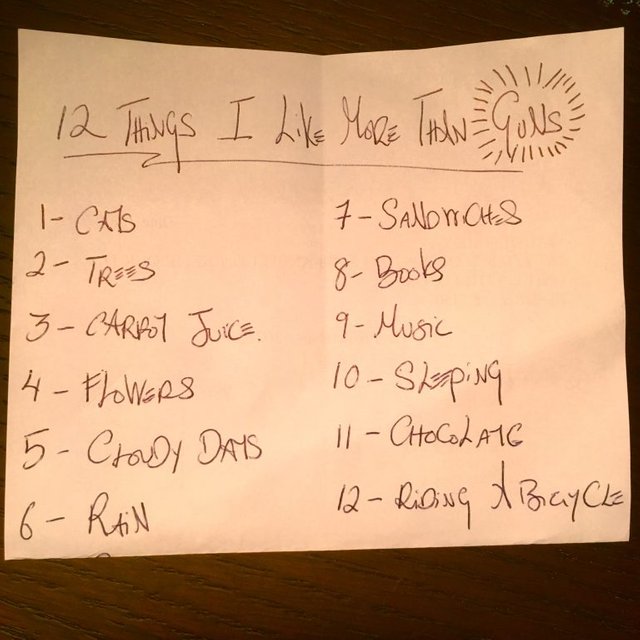 12 THINGS I LIKE MORE THAN GUNS
1 - CATS
2 - TREES
3 - CARROT JUICE.
4 - FLOWERS
5 - CLOUDY DAYS
6 - RAIN
7 - SANDWICHES
8 - BOOKS
9 - MUSIC
10 - SLEEPING
11 - CHOCOLATE
12 - RIDING A BICYCLE